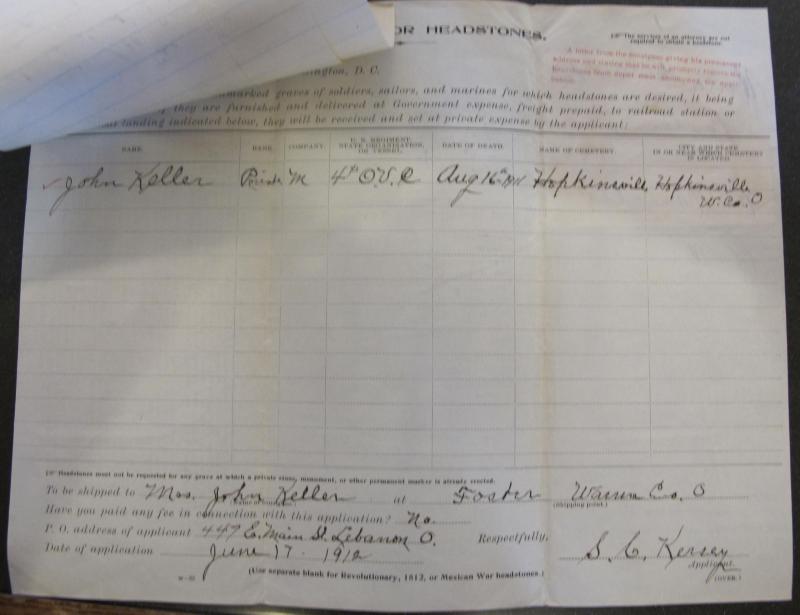 OR HEADSTONES.
☞ The services of an attorney are not
required to obtain a headstone.
A letter from the consignee giving his permanent
address and stating that he will promptly remove the
headstones from depot must
ington, D. C.
marked graves of soldiers, sailors, and marines for which headstones are desired, it being
they are furnished and delivered at Government expense, freight prepaid, to railroad station or
landing indicated below, they will be received and set at private expense by the applicant:
NAME. RANK. COMPANY. U. S. REGIMENT, STATE ORGANIZATION, OR VESSEL. DATE OF DEATH. NAME OF CEMETERY. CITY AND STATE IN OR NEAR WHICH CEMETERY IS LOCATED.
John Keller Private M 4th O.V.C Aug 16th 1911 Hopkinsville Hopkinsville
W. Co. O
☞ Headstones must not be requested for any grave at which a private stone, monument, or other permanent marker is already erected.
To be shipped to Mrs. John Keller at Foster Warren Co. O
(Shipping point.)
Have you paid any fee in connection with this application? No.
P. O. address of applicant 447 E. Main St. Lebanon O. Respectfully,
Date of application June 17 1912 S. C. Kersey
Applicant.
(Use separate blank for Revolutionary, 1812, or Mexican War headstones.)
(OVER.)